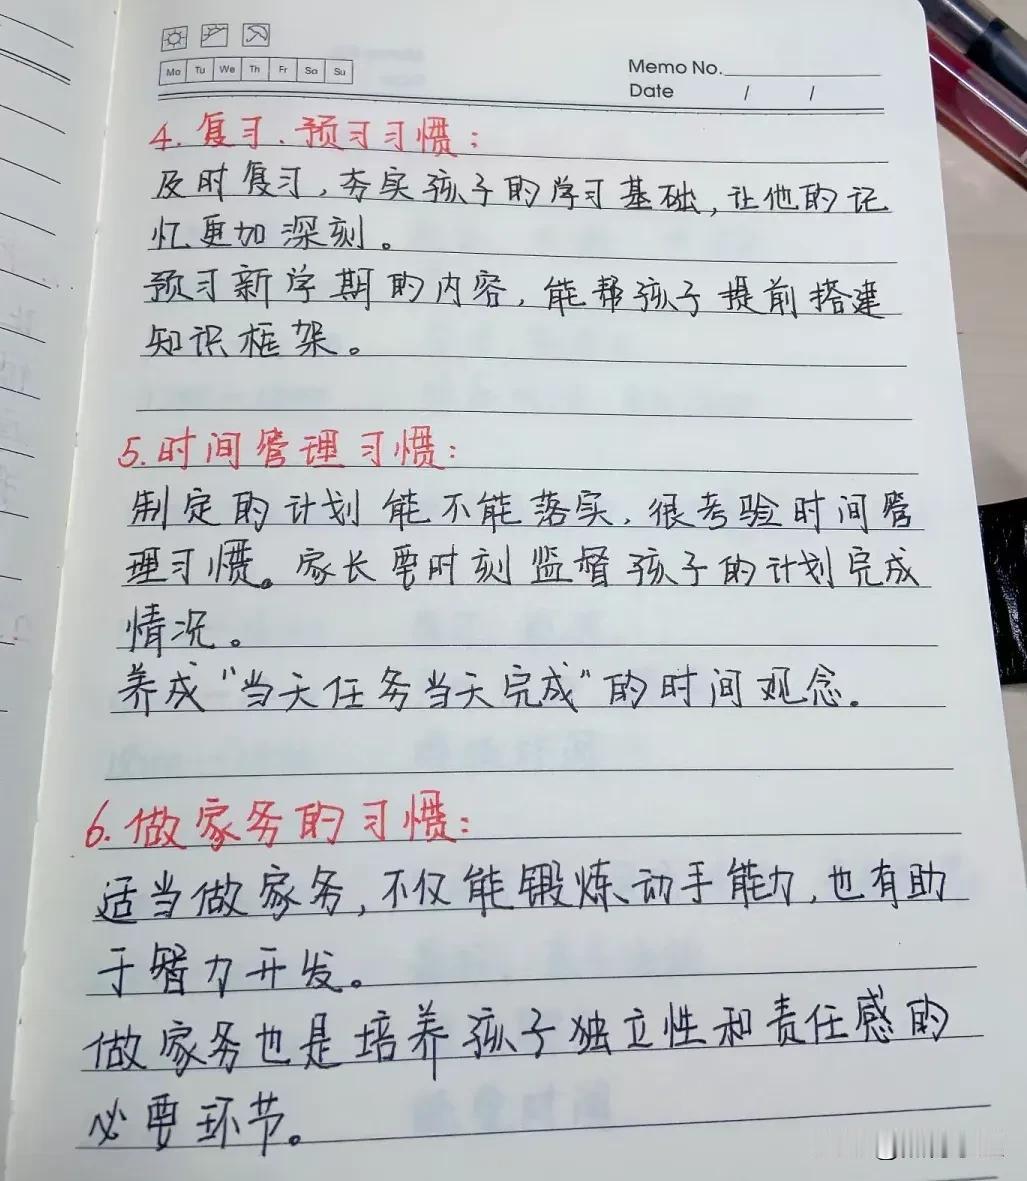 Mo Tu We Th Fr Sa Su
Memo No.
Date / /
4.复习、预习习惯：
及时复习，夯实孩子的学习基础，让他的记
忆更加深刻。
预习新学期的内容，能帮孩子提前搭建
知识框架。
5.时间管理习惯：
制定的计划能不能落实，很考验时间管
理习惯。家长要时刻监督孩子的计划完成
情况。
养成“当天任务当天完成”的时间观念。
6.做家务的习惯：
适当做家务，不仅能锻炼动手能力，也有助
于智力开发。
做家务也是培养孩子独立性和责任感的
必要环节。